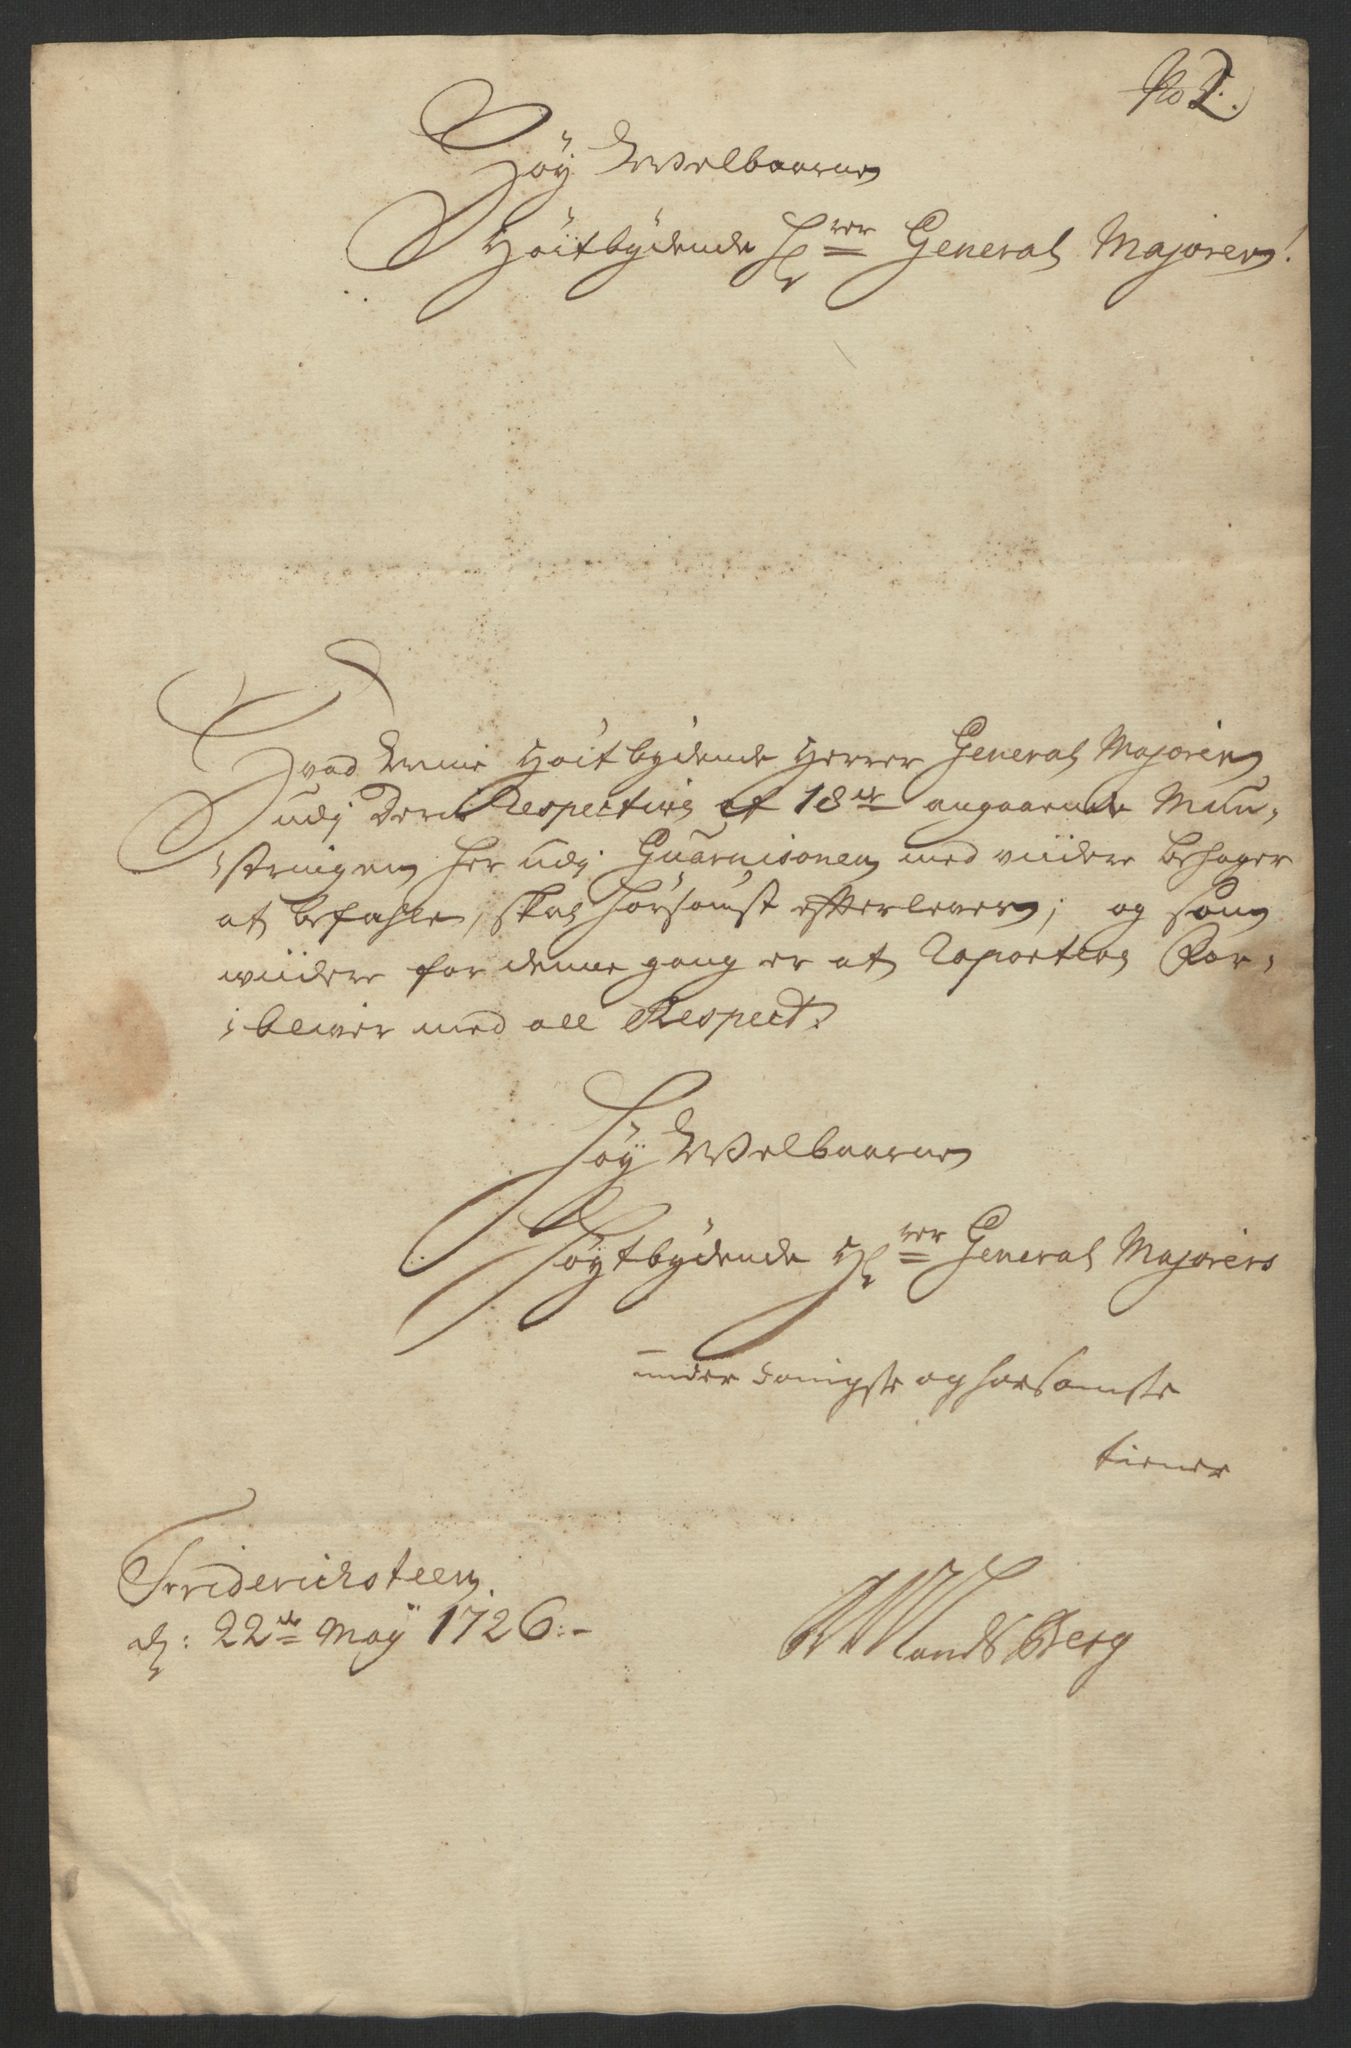 No 2.
Høy Welbaarne
Høitbydende Hrer General Majoren!
Hvad Deris Høitbydende Herrer General Majoren
udj Deris Respective af 18de angaaende Mun-
stringen her udj Guarnisonen med viidere behager
at befahle, skal hørsomst efterleves; og som
viidere for denne gang er at Raportere For-
bliver med all Respect.
Høy Welbaarne
Høytbydende Hrer General Majorens
underdanigste og hørsomste
tiener
Friderichsteen
d: 22de Maÿ 1726:-
Landsberg